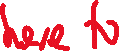 here to